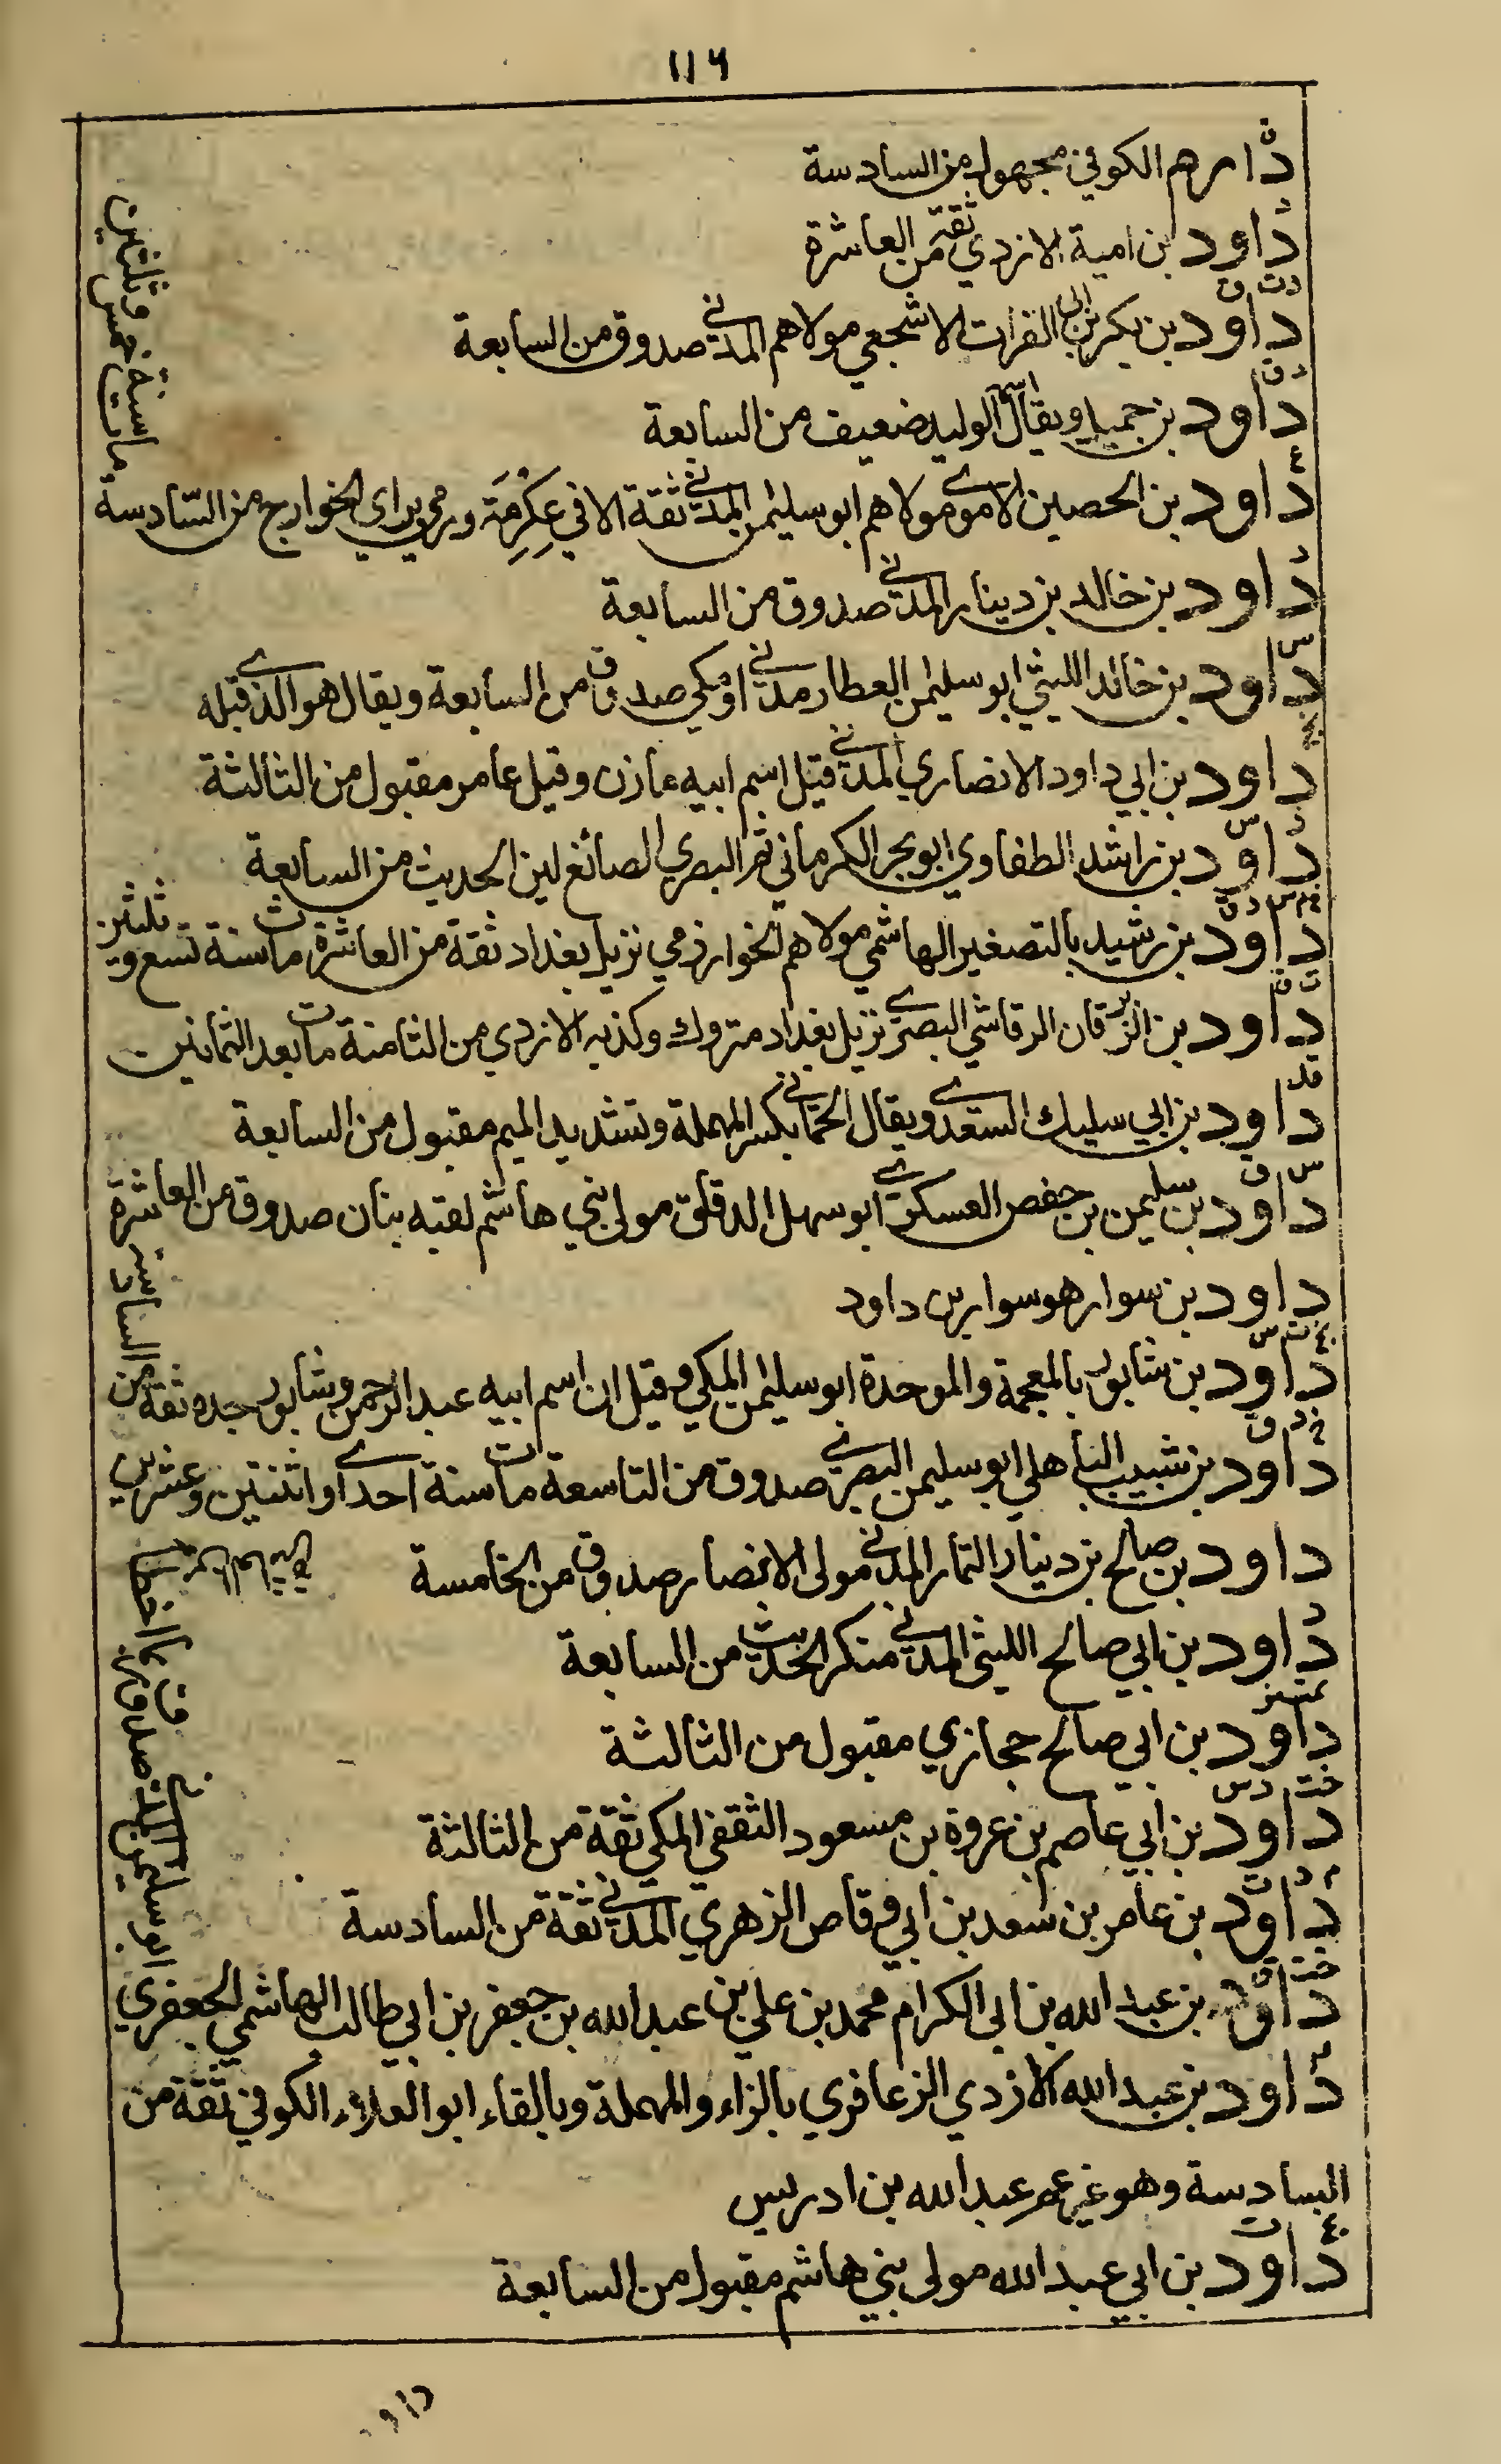 ١١٦
ق
دارم الكوفي مجهول من السادسة
د
داود بن امية الازدي ثقة من العاشرة
د ت ق
داود بن بكر بن ابي الفرات الاشجعي مولاهم المدني صدوق من السابعة
د ق
داود بن جميل ويقال اسمه الوليد ضعيف من السابعة
ع
داود بن الحصين الاموي مولاهم ابو سليمن المدني ثقة الا في عِكْرِمَة ورمي براي الخوارج من السّادسة
مات سنة خمس وثلثين
د
داود بن خالد بن دينار المدني صدوق من السابعة
س
داود بن خالد الليثي ابو سليمن العطار مدني او مكي صدوق من السابعة ويقال هو الذي قبله
داود بن ابي داود الانصاري المدني قيل اسم ابيه مازن وقيل عامر مقبول من الثالثة
د س
داود بن راشد الطفاوي ابو بحر الكرماني ثم البصري الصائغ لين الحديث من السابعة
خ م س د ق
داود بن رشيد بالتصغير الهاشمي مولاهم الخوارزمي نزيل بغداد ثقة من العاشرة مات سنة تسع و
ثلثين
ت ق
داود بن الزبرقان الرقاشي البصري نزيل بغداد متروك وكذبه الازدي من الثامنة مات بعد الثمانين
قد
داود بن ابي سليك السعدي ويقال الحماني بكسر المهملة وتشديد الميم مقبول من السابعة
س ق
داود بن سليمن بن حفص العسكري ابو سهل الدقاق مولى بني هاشم لقبه بنان صدوق من العاشرة
داود بن سوار هو سوار بن داود
داود بن شابور بالمعجمة والموحدة ابو سليمن المكي وقيل ان اسم ابيه عبد الرحمن وشابور جده ثقة من
السادسة
خ د ق
داود بن شبيب الباهلي ابو سليمن البصري صدوق من التاسعة مات سنة احدى او اثنتين وعشرين
داود بن صالح بن دينار التمار المدني مولى الانصار صدوق من الخامسة
د
داود بن ابي صالح الليثي المدني منكر الحديث من السابعة
تمييز
داود بن ابي صالح حجازي مقبول من الثالثة
خت د س
داود بن ابي عاصم بن عروة بن مسعود الثقفي المكي ثقة من الثالثة
م د ت
داود بن عامر بن سعد بن ابي وقاص الزهري المدني ثقة من السادسة
خت ق
داود بن عبد الله بن ابي الكرام محمد بن علي بن عبد الله بن جعفر بن ابي طالب الهاشمي الجعفري
ابو سليمن المدني صدوق ربما اخطا
داود بن عبد الله الازدي الزعافري بالزاء والمهملة وبالفاء ابو العلاء الكوفي ثقة من
السادسة وهو غير عم عبد الله بن ادريس
داود بن ابي عبد الله مولى بني هاشم مقبول من السابعة
داود